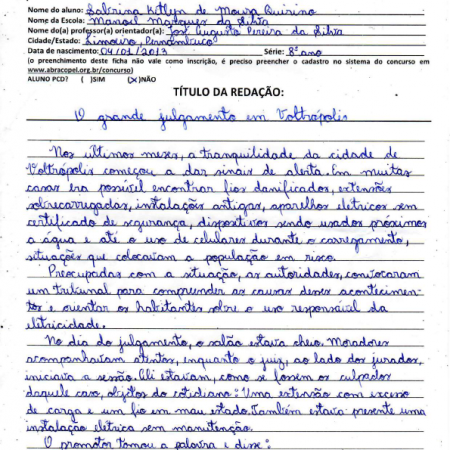 Nome do aluno: Sabrina Kitlyn de Moura Quirino
Nome da Escola: Manoel Marques da Silva
Nome do(a) professor(a) orientador(a): José Augusto Pereira da Silva
Cidade/Estado: Limoeiro, Pernambuco
Data de nascimento: 04/01/2013 Série: 8º ano
(o preenchimento deste ficha não vale como inscrição, é preciso preencher o cadastro no sistema do concurso em
www.abracopel.org.br/concurso)
ALUNO PCD? ( )SIM (X)NÃO
TÍTULO DA REDAÇÃO:
O grande julgamento em Voltrópolis
Nos últimos meses, a tranquilidade da cidade de
Voltrópolis começou a dar sinais de alerta. Em muitas
casas era possível encontrar fios danificados, extensões
sobrecarregadas, instalações antigas, aparelhos elétricos sem
certificado de segurança, dispositivos sendo usados próximos
a água e até o uso de celulares durante o carregamento,
situações que colocavam a população em risco.
Preocupadas com a situação, as autoridades, convocaram
um tribunal para compreender as causas desses acontecimen-
tos e orientar os habitantes sobre o uso responsável da
eletricidade.
No dia do julgamento, o salão estava cheio. Moradores
acompanhavam atentos, enquanto o juiz, ao lado dos jurados,
iniciava a sessão. Ali estavam, como se fossem os culpados
daquele caso, objetos do cotidiano: Uma extensão com excesso
de carga e um fio em mau estado. Também estava presente uma
instalação elétrica sem manutenção.
O promotor tomou a palavra e disse: